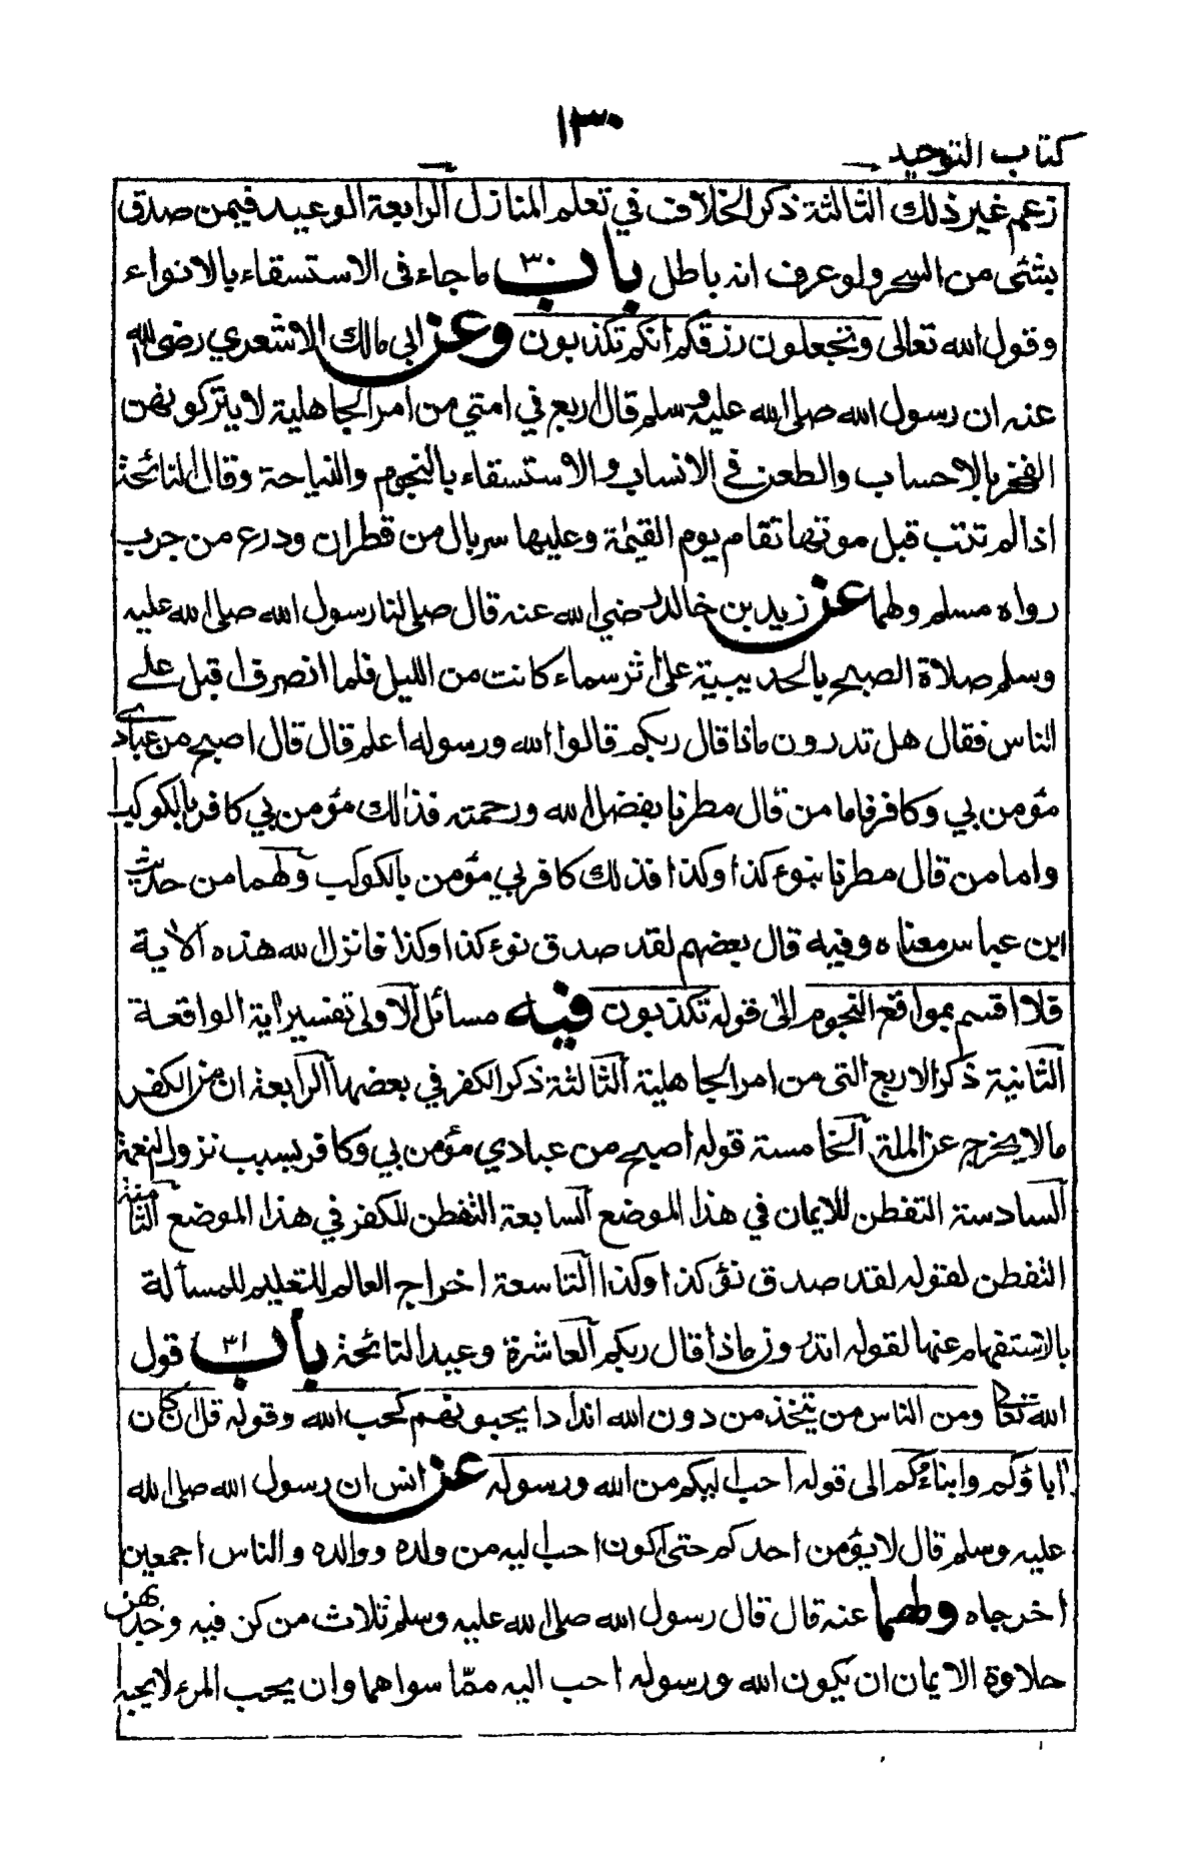 ١٣٠
كتاب التوحيد
زعم غير ذلك الثالثة ذكر الخلاف في تعلم المنازل الرابعة الوعيد فيمن صدق
بشئ من السحر ولو عرف انه باطل باب ٣٠ ما جاء فى الاستسقاء بالانواء
وقول الله تعالى وتجعلون رزقكم انكم تكذبون وعن ابى مالك الاشعري رضى الله
عنه ان رسول الله صلى الله عليه وسلم قال اربع في امتي من امر الجاهلية لا يتركونهن
الفخر بالاحساب والطعن في الانساب والاستسقاء بالنجوم والنياحة وقال النائحة
اذا لم تتب قبل موتها تقام يوم القيمة وعليها سربال من قطران ودرع من جرب
رواه مسلم ولهما عن زيد بن خالد رضي الله عنه قال صلى لنا رسول الله صلى الله عليه
وسلم صلاة الصبح بالحديبية على اثر سماء كانت من الليل فلما انصرف اقبل على
الناس فقال هل تدرون ماذا قال ربكم قالوا الله ورسوله اعلم قال قال اصبح من عبادى
مؤمن بي وكافر فاما من قال مطرنا بفضل الله ورحمته فذلك مؤمن بي كافر بالكوكب
واما من قال مطرنا بنوء كذا وكذا فذلك كافر بي مؤمن بالكوكب ولهما من حديث
ابن عباس معناه وفيه قال بعضهم لقد صدق نوء كذا وكذا فانزل الله هذه الآية
فلا اقسم بمواقع النجوم الى قوله تكذبون فيه مسائل الاولى تفسير اية الواقعة
الثانية ذكر الاربع التى من امر الجاهلية الثالثة ذكر الكفر في بعضها الرابعة ان من الكفر
ما لا يخرج عن الملة الخامسة قوله اصبح من عبادي مؤمن بي وكافر بسبب نزول النعمة
السادسة التفطن للايمان في هذا الموضع السابعة التفطن للكفر في هذا الموضع الثامنة
التفطن لقوله لقد صدق نؤ كذا وكذا التاسعة اخراج العالم للتعليم للمسألة
بالاستفهام عنها لقوله اتدرون ماذا قال ربكم العاشرة وعيد النائحة باب ٣١ قول
الله تعالى ومن الناس من يتخذ من دون الله اندادا يحبونهم كحب الله وقوله قل ان كان
اباؤكم وابناءكم الى قوله احب اليكم من الله ورسوله عن انس ان رسول الله صلى الله
عليه وسلم قال لا يؤمن احدكم حتى اكون احب اليه من ولده ووالده والناس اجمعين
اخرجاه ولهما عنه قال قال رسول الله صلى الله عليه وسلم ثلاث من كن فيه وجد بهن
حلاوة الايمان ان يكون الله ورسوله احب اليه مما سواهما وان يحب المرء لا يحبه